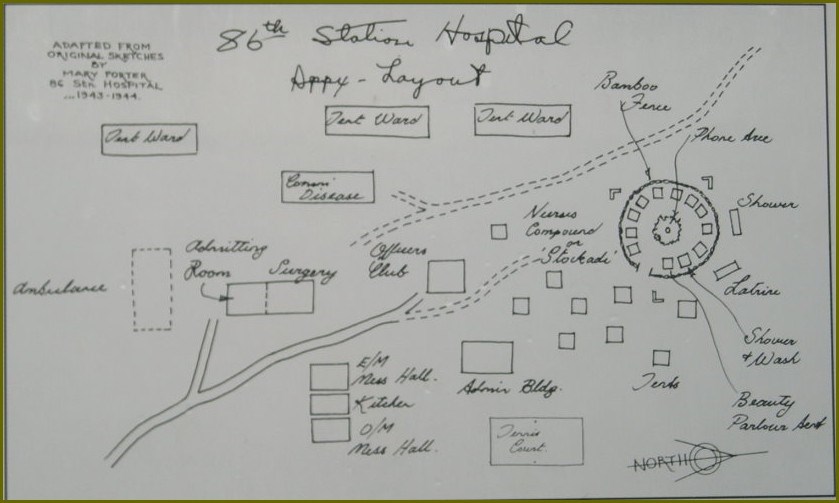 86th Station Hospital
Appx - Layout
ADAPTED FROM
ORIGINAL SKETCHES
BY
MARY PORTER
86 Stn. HOSPITAL
...1943-1944.
Tent Ward
Tent Ward
Tent Ward
Bamboo
Fence
Phone Tree
Comm
Disease
Nurses
Compound
or
'Stockade'
Shower
Admitting
Room
Surgery
Officers
Club
Ambulance
Latrine
Shower
& Wash
E/M
Mess Hall.
Kitchen
O/M
Mess Hall.
Admin Bldg.
Tents
Beauty
Parlour Tent
Tennis
Court.
NORTH